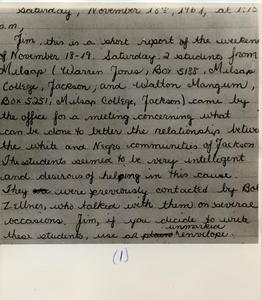 Saturday, November 18th, 1961, at
p.m.,
Jim, this is a short report of the weekend
of November 18-19. Saturday, 2 students from
Milsap (Warren Jones, Box 5188, Milsap
College, Jackson; and Walton Mangum,
Box 5251, Milsap College, Jackson) came by
the office for a meeting concerning what
can be done to better the relationship betwe
the white and Negro communities of Jackson.
The students seemed to be very intelligent
and desirous of helping in this cause.
They were previously contacted by Bob
Zellner, who talked with them on several
occasions. Jim, if you decide to write
unmarked
these students, use a plain envelope.
(1)